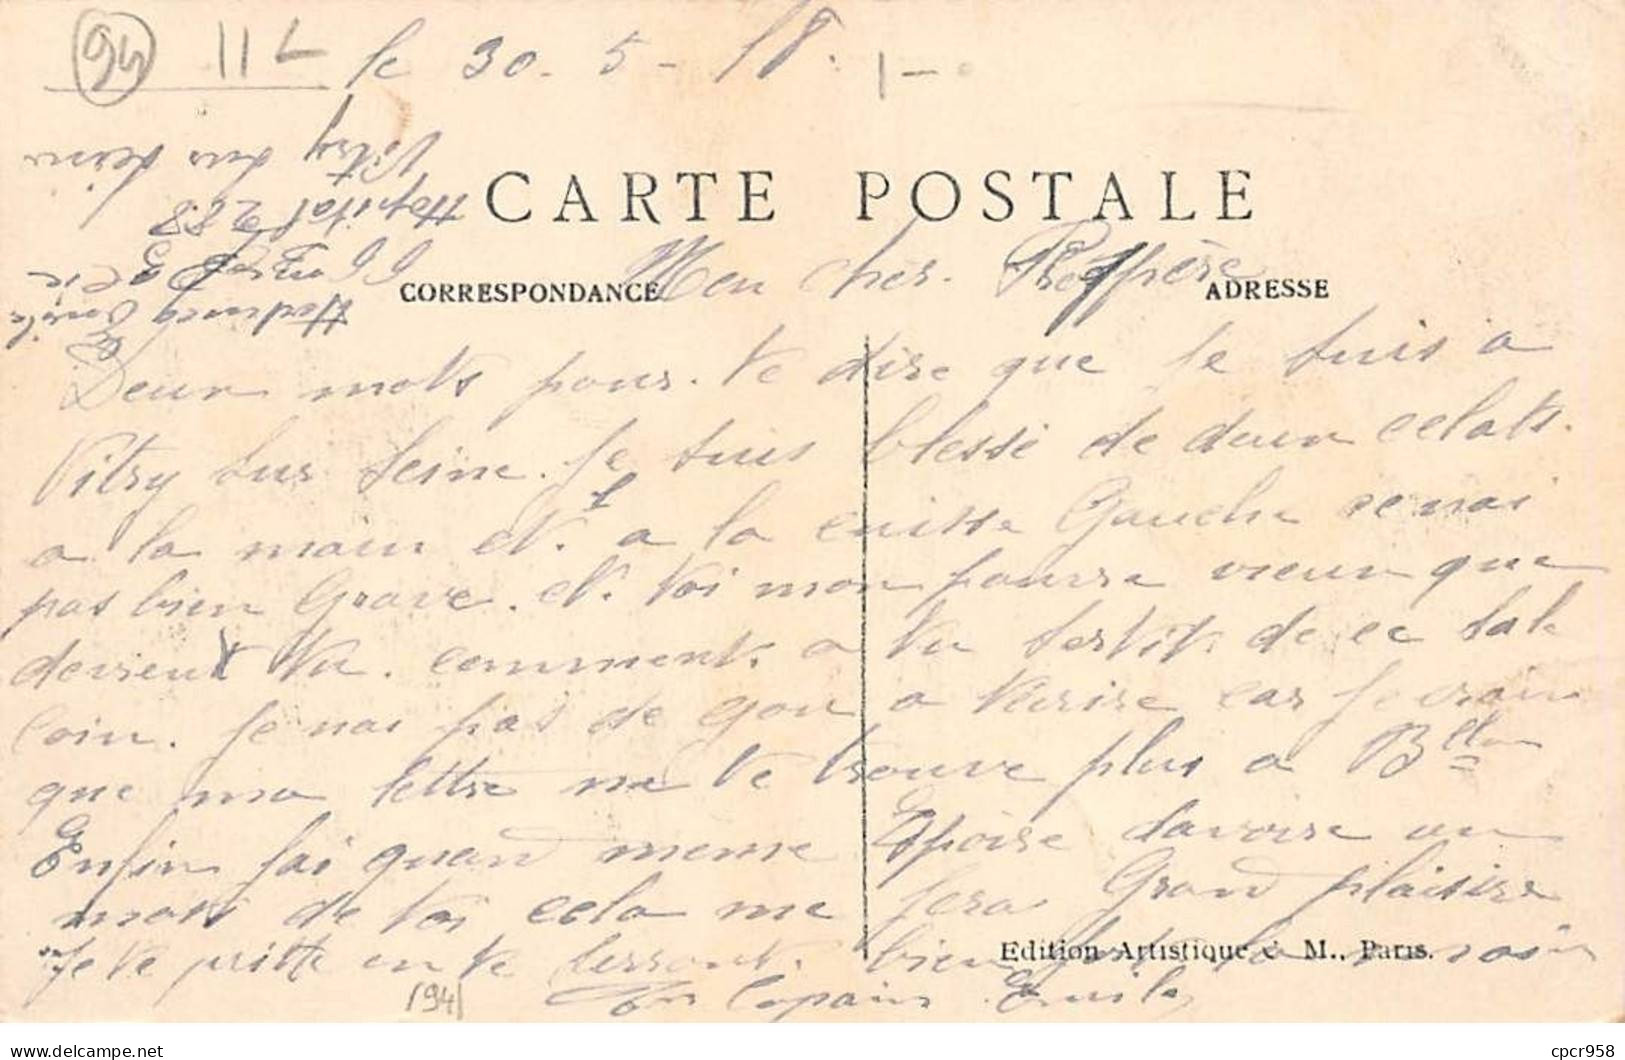 94 11 L le 30 - 5 - 18. 1 -
Vitry sur Seine
Hopital 288
Emile
CARTE POSTALE
CORRESPONDANCE
ADRESSE
Mon cher.
Deux mots pour. te dire que je suis a
Vitry sur Seine. Je suis blessé de deux eclats.
a la main et. a la cuisse Gauche ce nai
pas bien Grave. et. toi mon pauvre vieux que
devient tu. comment. a tu sortit. de ce sale
coin. Je nai pas de gou a tecrire car Je crain
que ma lettre ne te trouve plus a Btlon
Enfin jai quand meme Espoire davoire un
mots de toi cela me fera Grand plaisire
Je te quitte en te serrant. bien fort la main
Ton Copain Emile
Edition Artistique C. M., Paris.
(94)
cpcr958
www.delcampe.net